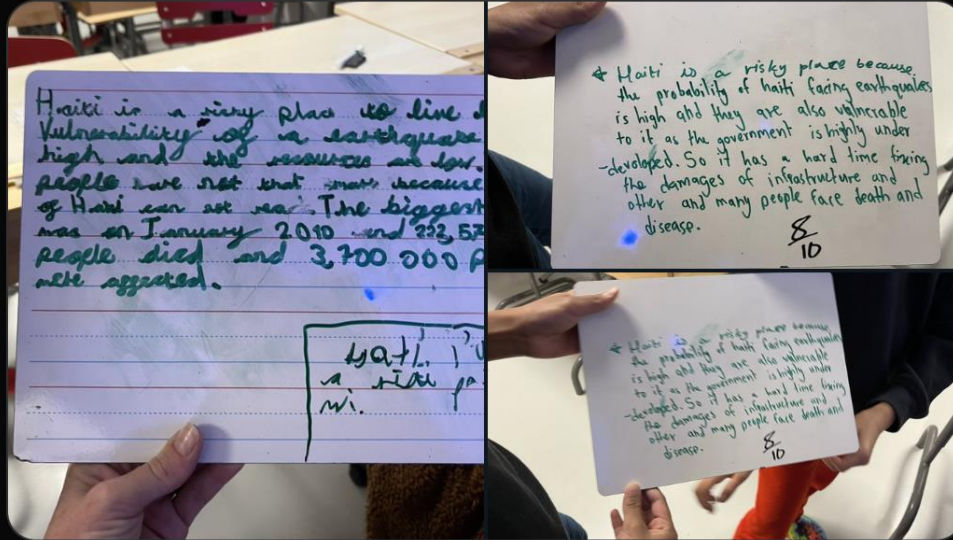 Haiti is a risky place to live
Vulnerability of a earthquake
high and the resources are low.
people have not that much because
of Haiti can not . The biggest
was on January 2010 and 222,57
people died and 3,700 000 p
were affected.
a
Haiti is a risky place because
the probability of haiti facing earthquakes
is high and they are also vulnerable
to it as the government is highly under
-devoloped. So it has a hard time fixing
the damages of infrastructure and
other and many people face death and
disease.
8/10
Haiti is a risky place because
the probability of haiti facing earthquakes
is high and they are also vulnerable
to it as the government is highly under
-devoloped. So it has a hard time fixing
the damages of infrastructure and
other and many people face death and
disease.
8/10